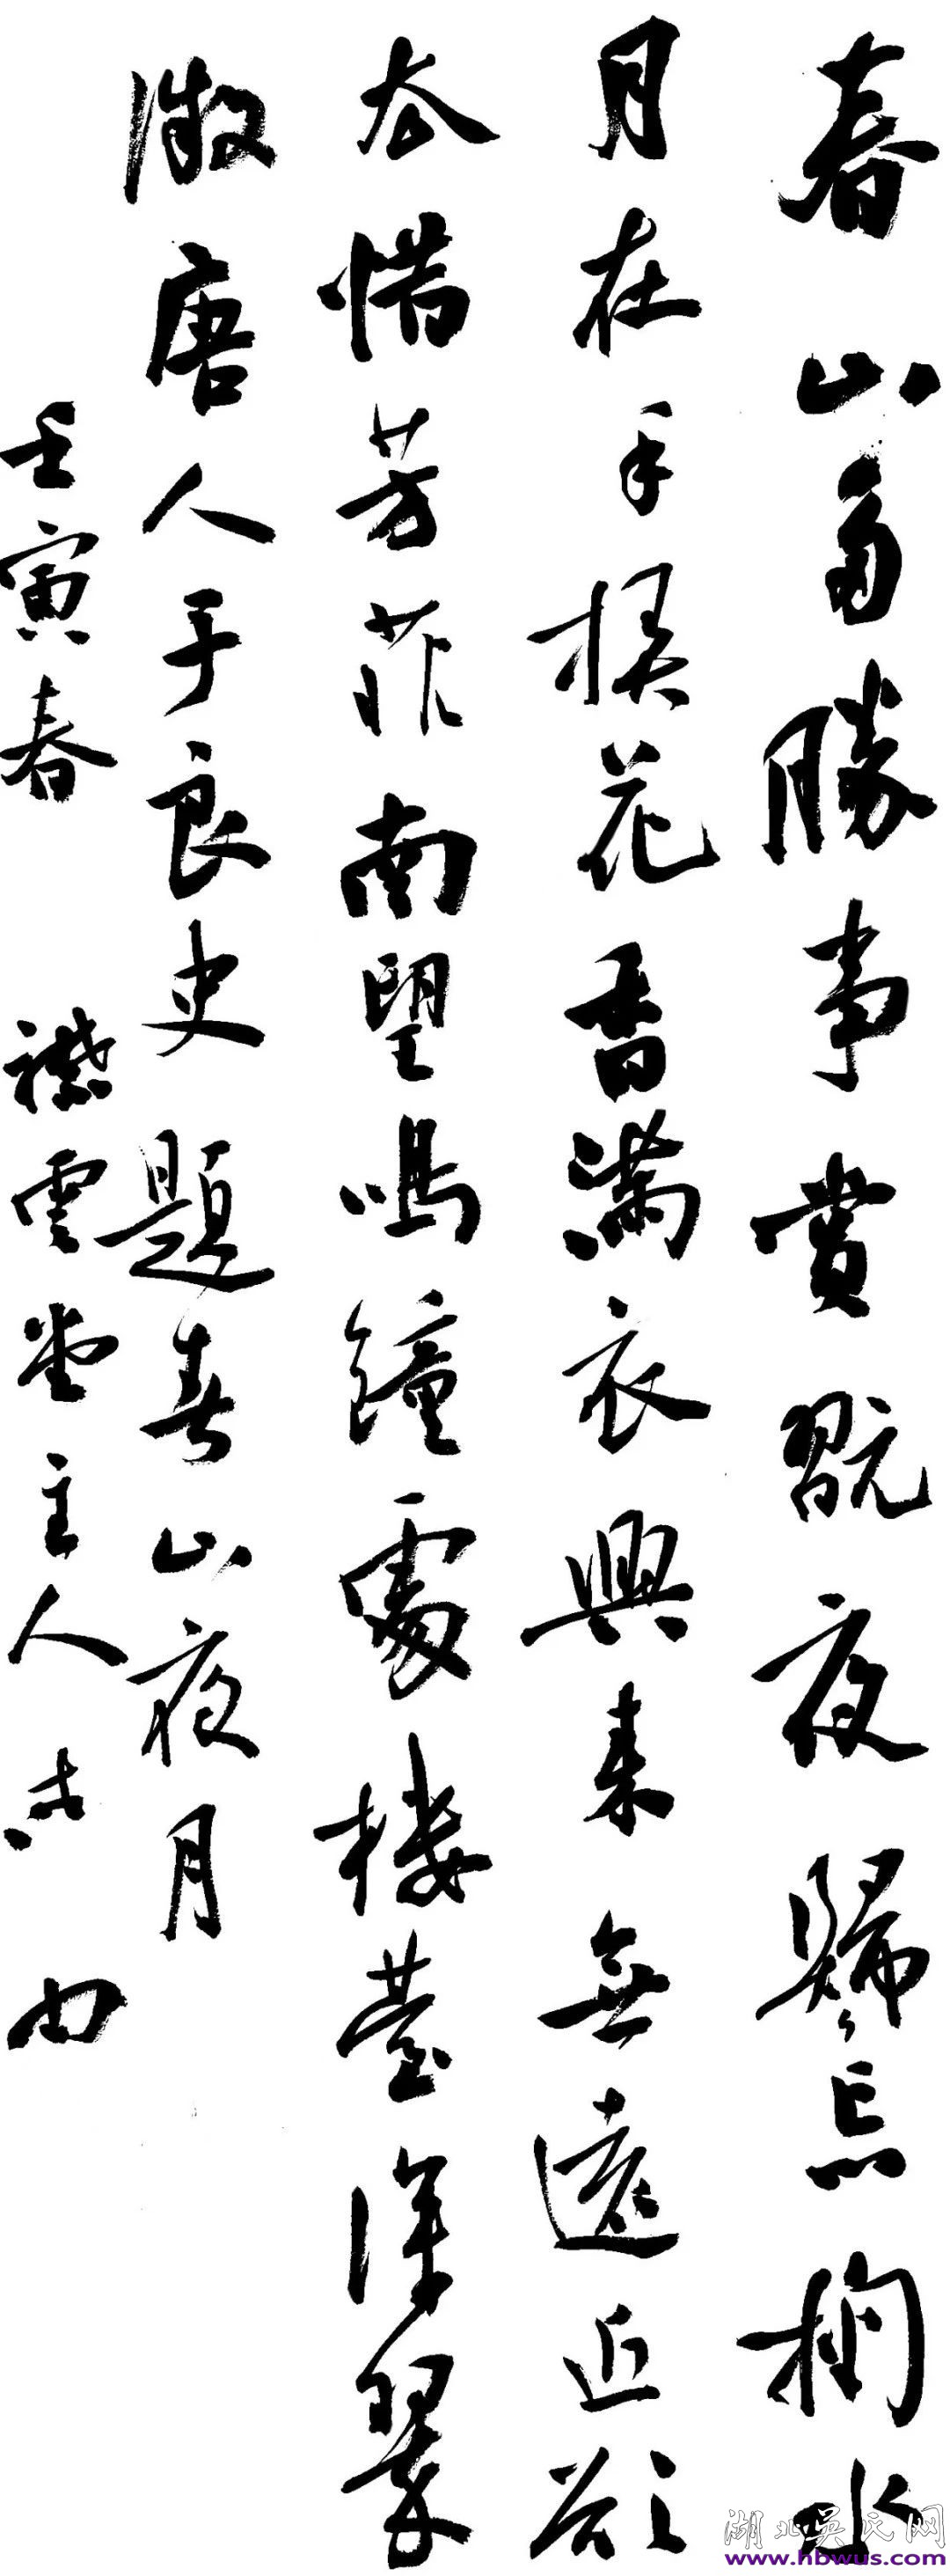 春山多勝事賞翫夜歸忘掬水
月在手挵花香滿衣興来無遠近欲
去惜芳菲南望鳴鐘處樓臺深翠
微唐人于良史題春山夜月
壬寅春 襟雲堂主人
湖北吳氏网
www.hbwus.com